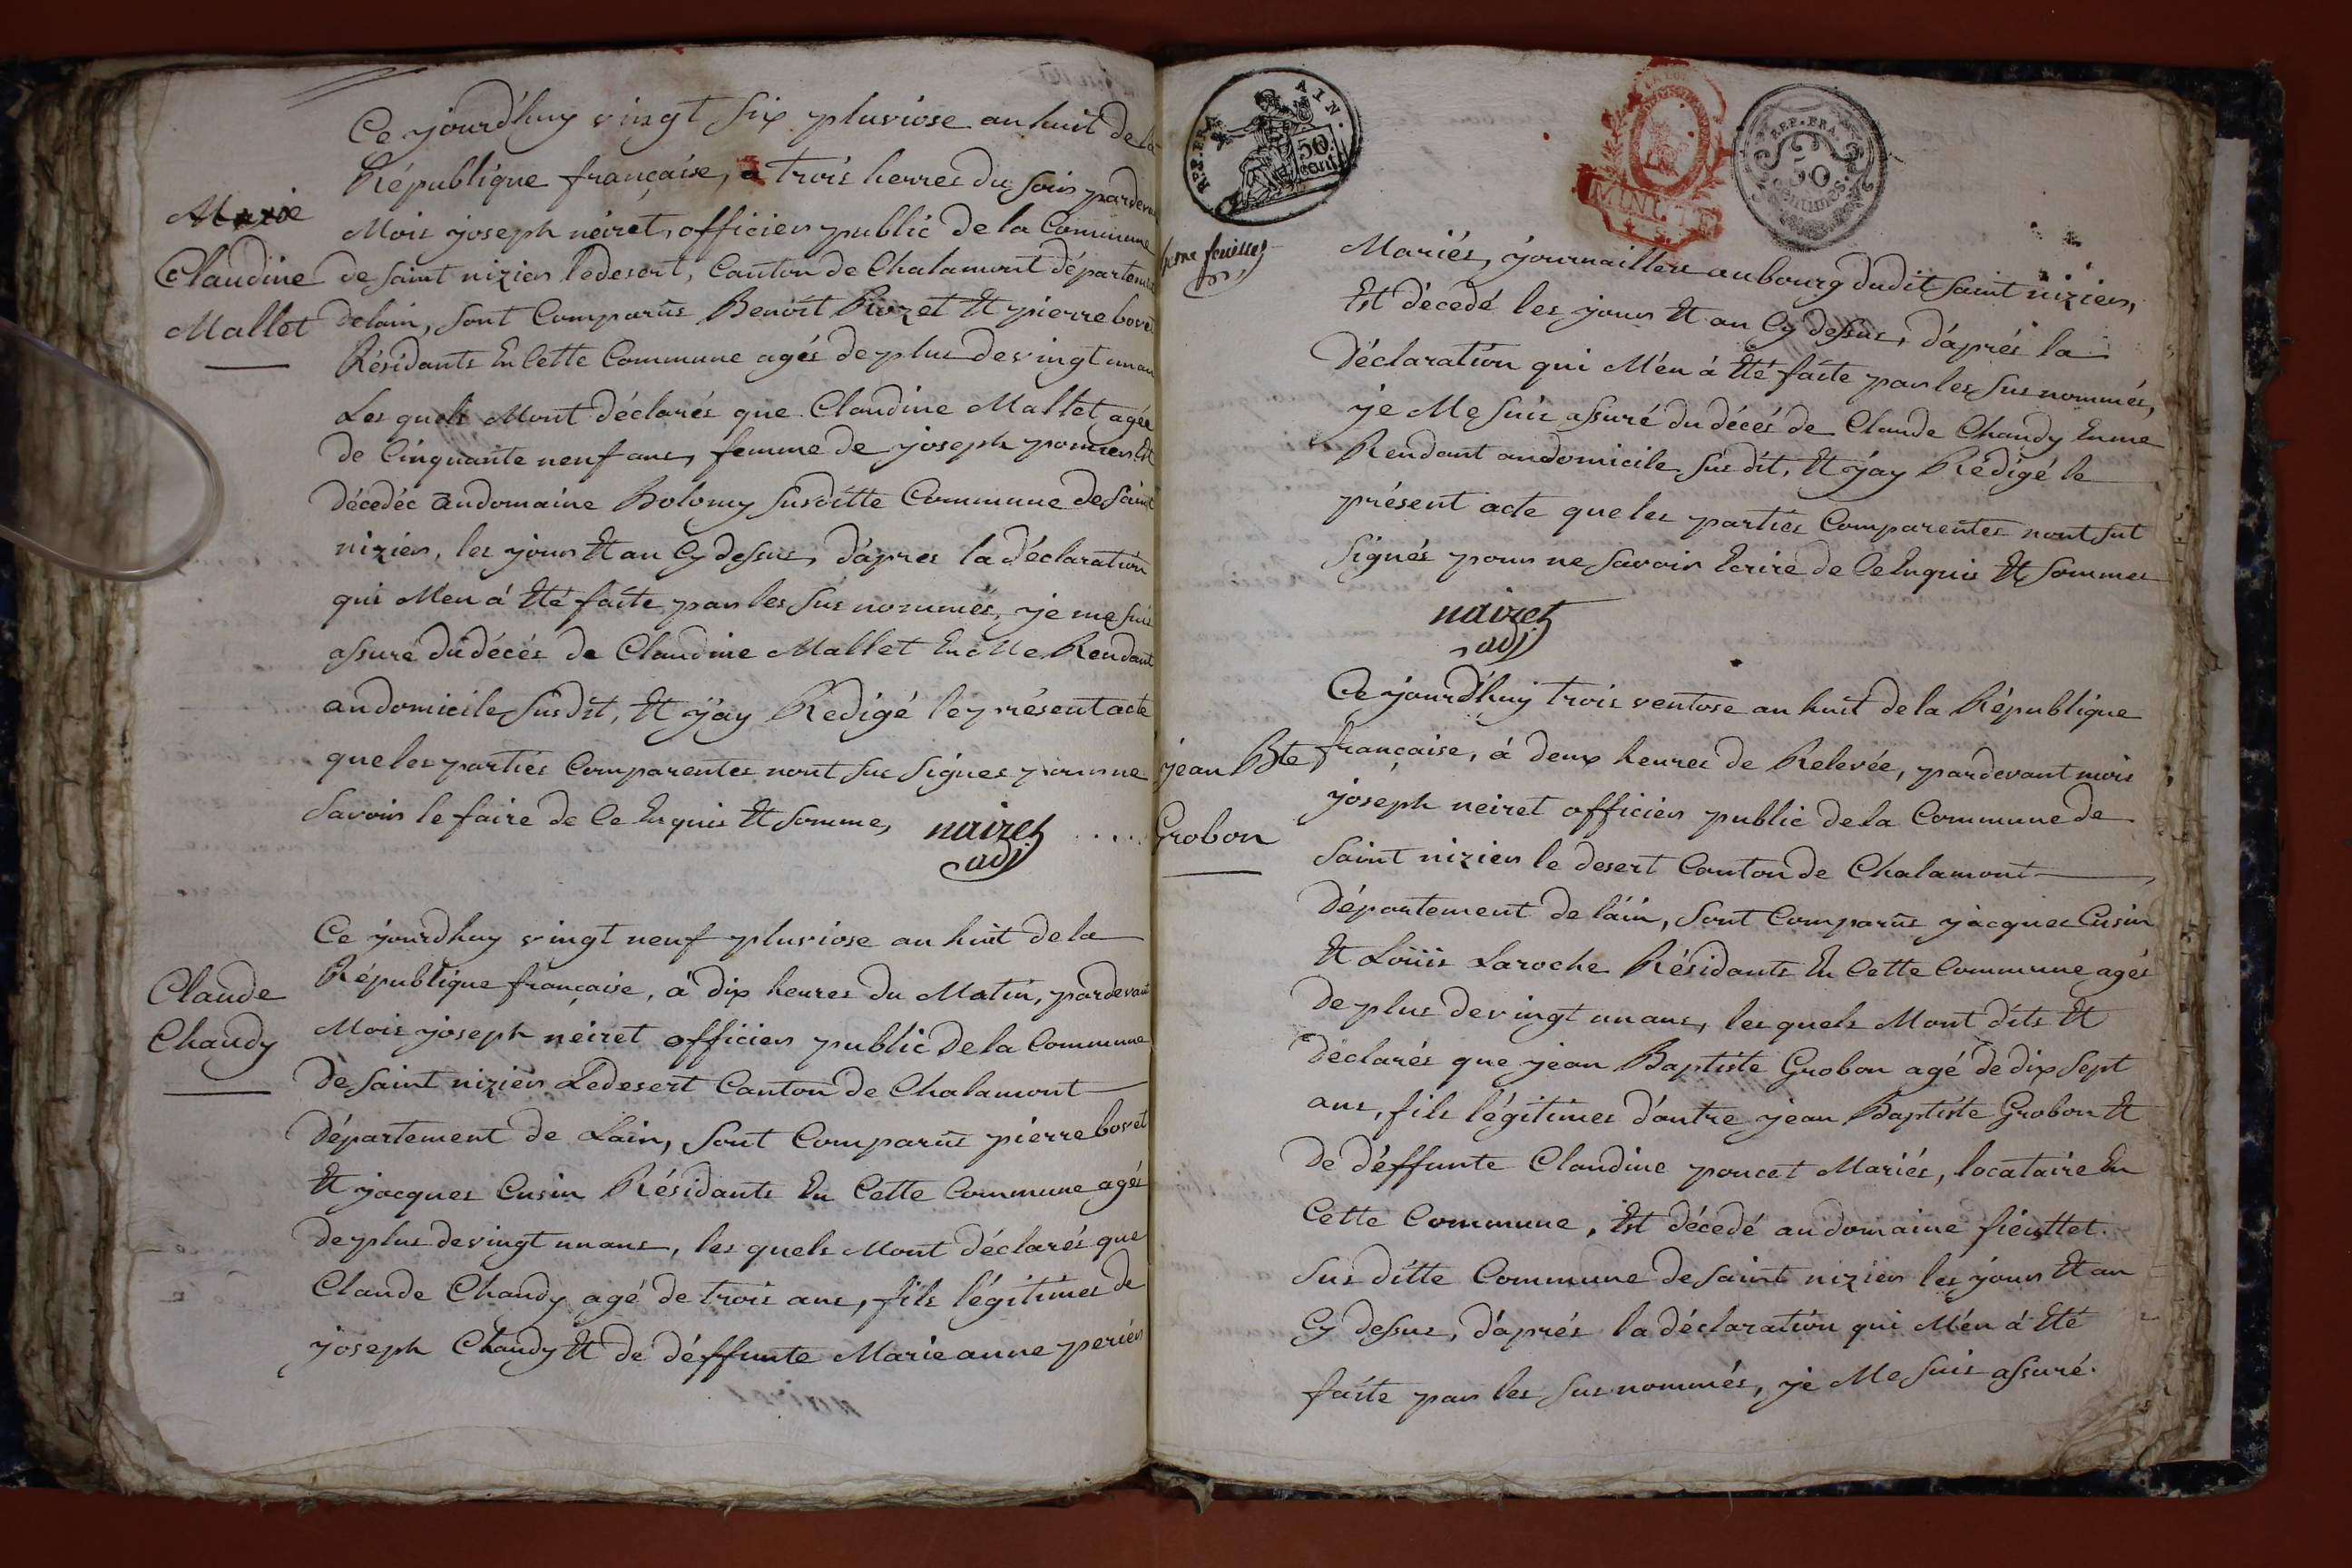 Ce yourd'huy vingt six pluviose an huit de la
République française, a trois herres du soir pardeva
Mois joseph neiret, officier public de la Commune
de saint nizier ledesert, Canton de Chalamont départem
delain, sont Comparûs Benoit Rozet Et pierre bovet
Résidants En Cette Commune agés de plus de vingt un an
Les quels Mont déclarés que Claudine Mallet agée
de Cinquante neuf ans, femme de joseph pomier Est
décedée audomaine Bolomy susditte Commune de saint
nizier, les jour Et an Cy dessus, d'apres la déclaration
qui M'en á Eté faite par les sus nommés, je me suis
assuré du décés de Claudine Mallet En Me Rendant
audomicile susdit, Et j'ay Redigé le présent acte
que les parties Comparentes nont sus signes pour ne
savoir le faire de Ce Enquis Et somme, nairet
adj.
Marie
Claudine
Mallet
Ce jourdhuy vingt neuf pluviose an huit de la
République française, á dix heures du Matin, pardevant
Mois joseph neiret officier public de la Commune
de saint nizier Ledesert Canton de Chalamont
Département de Lain, sont Comparûs pierre bovet
Et jacques Cusin Résidants En Cette Commune agés
de plus de vingt un ans, les quels Mont déclarés que
Claude Chaudy agé de trois ans, fils légitimes de
joseph Chaudy Et de déffunte Marie anne perier
Claude
Chaudy
REP. FRA. AIN.
50
cent
MINUTE
REP. FRA.
50
centimes
feuillet
Mariés, journailler au bourg dudit saint nizier,
Est décedé les jour Et an Cy dessus, d'aprés la
Déclaration qui M'en á Eté faite par les sus nommés,
je Me suis assuré du décés de Claude Chaudy En me
Rendant audomicile sus dit, Et j'ay Rédigé le
présent acte que les parties Comparentes nont sut
signés pour ne savoir Ecrire de Ce Enquis Et sommes
nairet
adj
Ce jourd'huy trois ventose an huit de la République
française, á deux heures de Relevée, pardevant mois
joseph neiret officier public de la Commune de
saint nizier le desert Canton de Chalamont
Département de láin, sont Comparûs jacques Cusin
Et Loüis Laroche Résidants En Cette Commune agés
de plus de vingt un ans, les quels Mont dits Et
déclarés que jean Baptiste Grobon agé de dix sept
ans, fils légitimes d'autre jean Baptiste Grobon Et
de déffunte Claudine poncet Mariés, locataire En
Cette Commune, Est décedé au domaine fieuttet
sus ditte Commune de saint nizier les jour Et an
Cy dessus, d'aprés la déclaration qui M'en á Eté
faite par les sus nommés, je Me suis assuré
jean Bte
Grobon